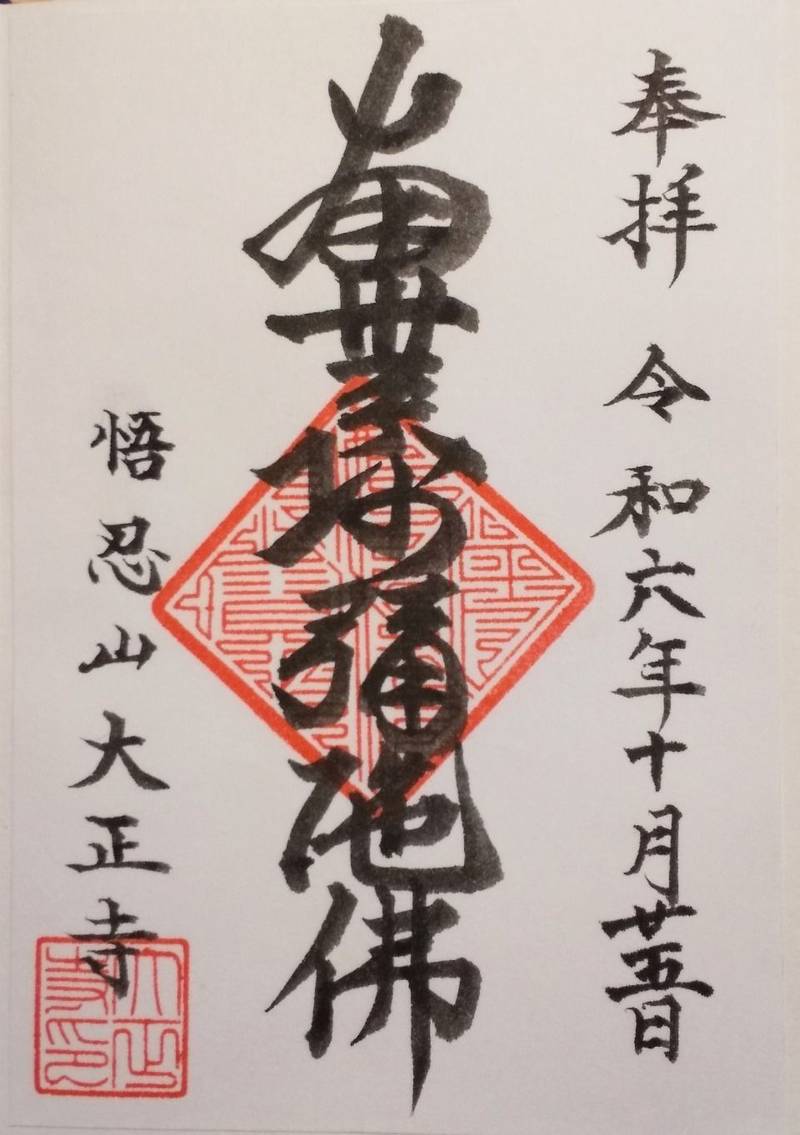 奉拝 令和六年十月廿五日
南無阿彌陀佛
悟忍山大正寺
大正寺印